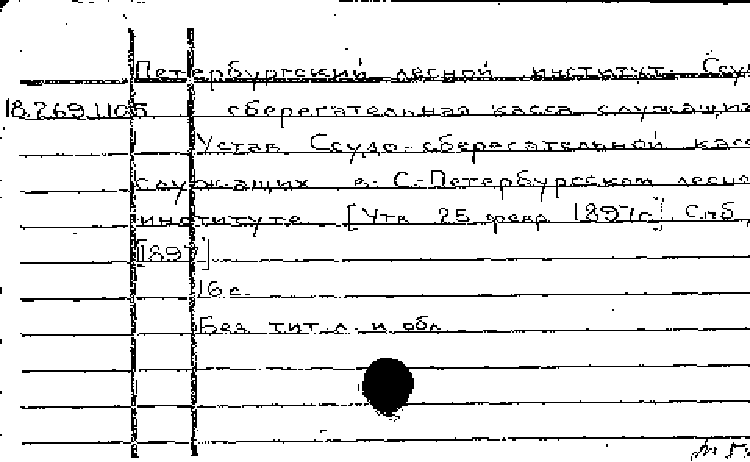 Петербургский лесной институт. Ссуд
18.269.1.105 сберегательная касса служащих
Устав Ссудо-сберегательной касс
служащих в С-Петербургском лесно
институте [Утв 25 февр 1897г] Спб,
[1897]
16с.
Без тит. л. и обл